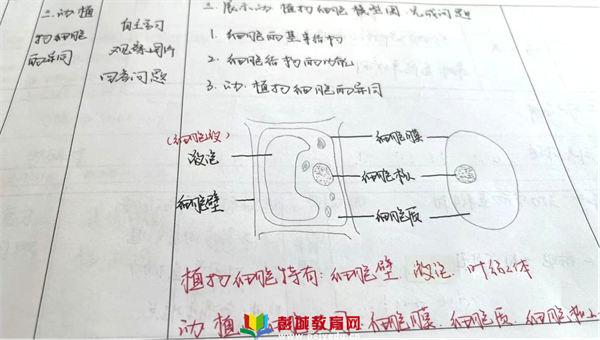 三.动.植
物细胞
的异同
自主学习
观察图片
回答问题
三.展示动.植物细胞模型图.完成问题
1.细胞的基本结构
2.细胞结构的功能
3.动.植物细胞的异同
(细胞液)
液泡
细胞壁
细胞膜
细胞核
细胞质
植物细胞特有:细胞壁 液泡.叶绿体
动 植 细胞膜.细胞质.细胞核
彭城教育网